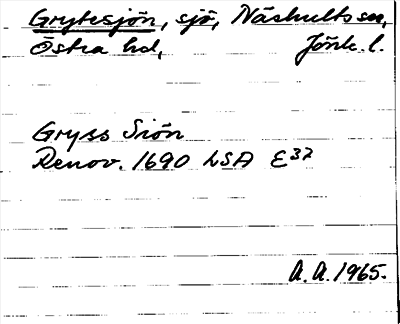 Grytesjön, sjö, Näshults sn,
Östra hd, Jönk. l.
Gryss Siön
Renov. 1690 LSA E37
A. A. 1965.